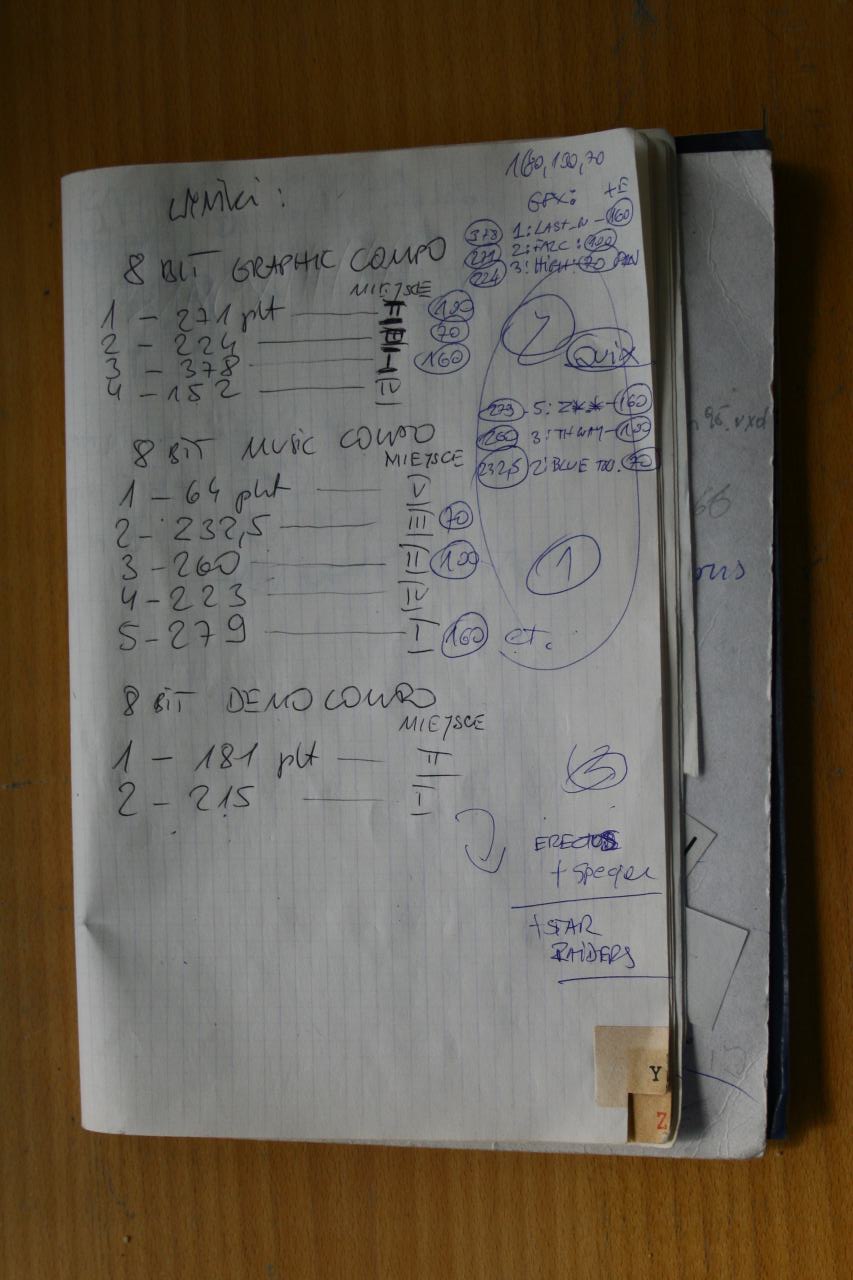 160, 130, 70
WYNIKI :
GFX: +E
378 1: LAST_N - 160
8 BIT GRAPHIC COMPO
271 2: FALC : 100
224 3: HIGH - 70
MIEJSCE
1 - 271 pkt II 100
2 - 224 III 70
3 - 378 I 160
4 - 152 IV
2
QUIX
279 5: Z** - 160
260 3: THWAY - 100
232,5 2: BLUE TOO. 70
8 BIT MUSIC COMPO
MIEJSCE
1 - 64 pkt V
2 - 232,5 III 70
3 - 260 II 100
4 - 223 IV
5 - 279 I 160 et.
1
8 BIT DEMO COMPO
MIEJSCE
1 - 181 pkt II
2 - 215 I
3
+ STAR
RAIDERS
Y
Z